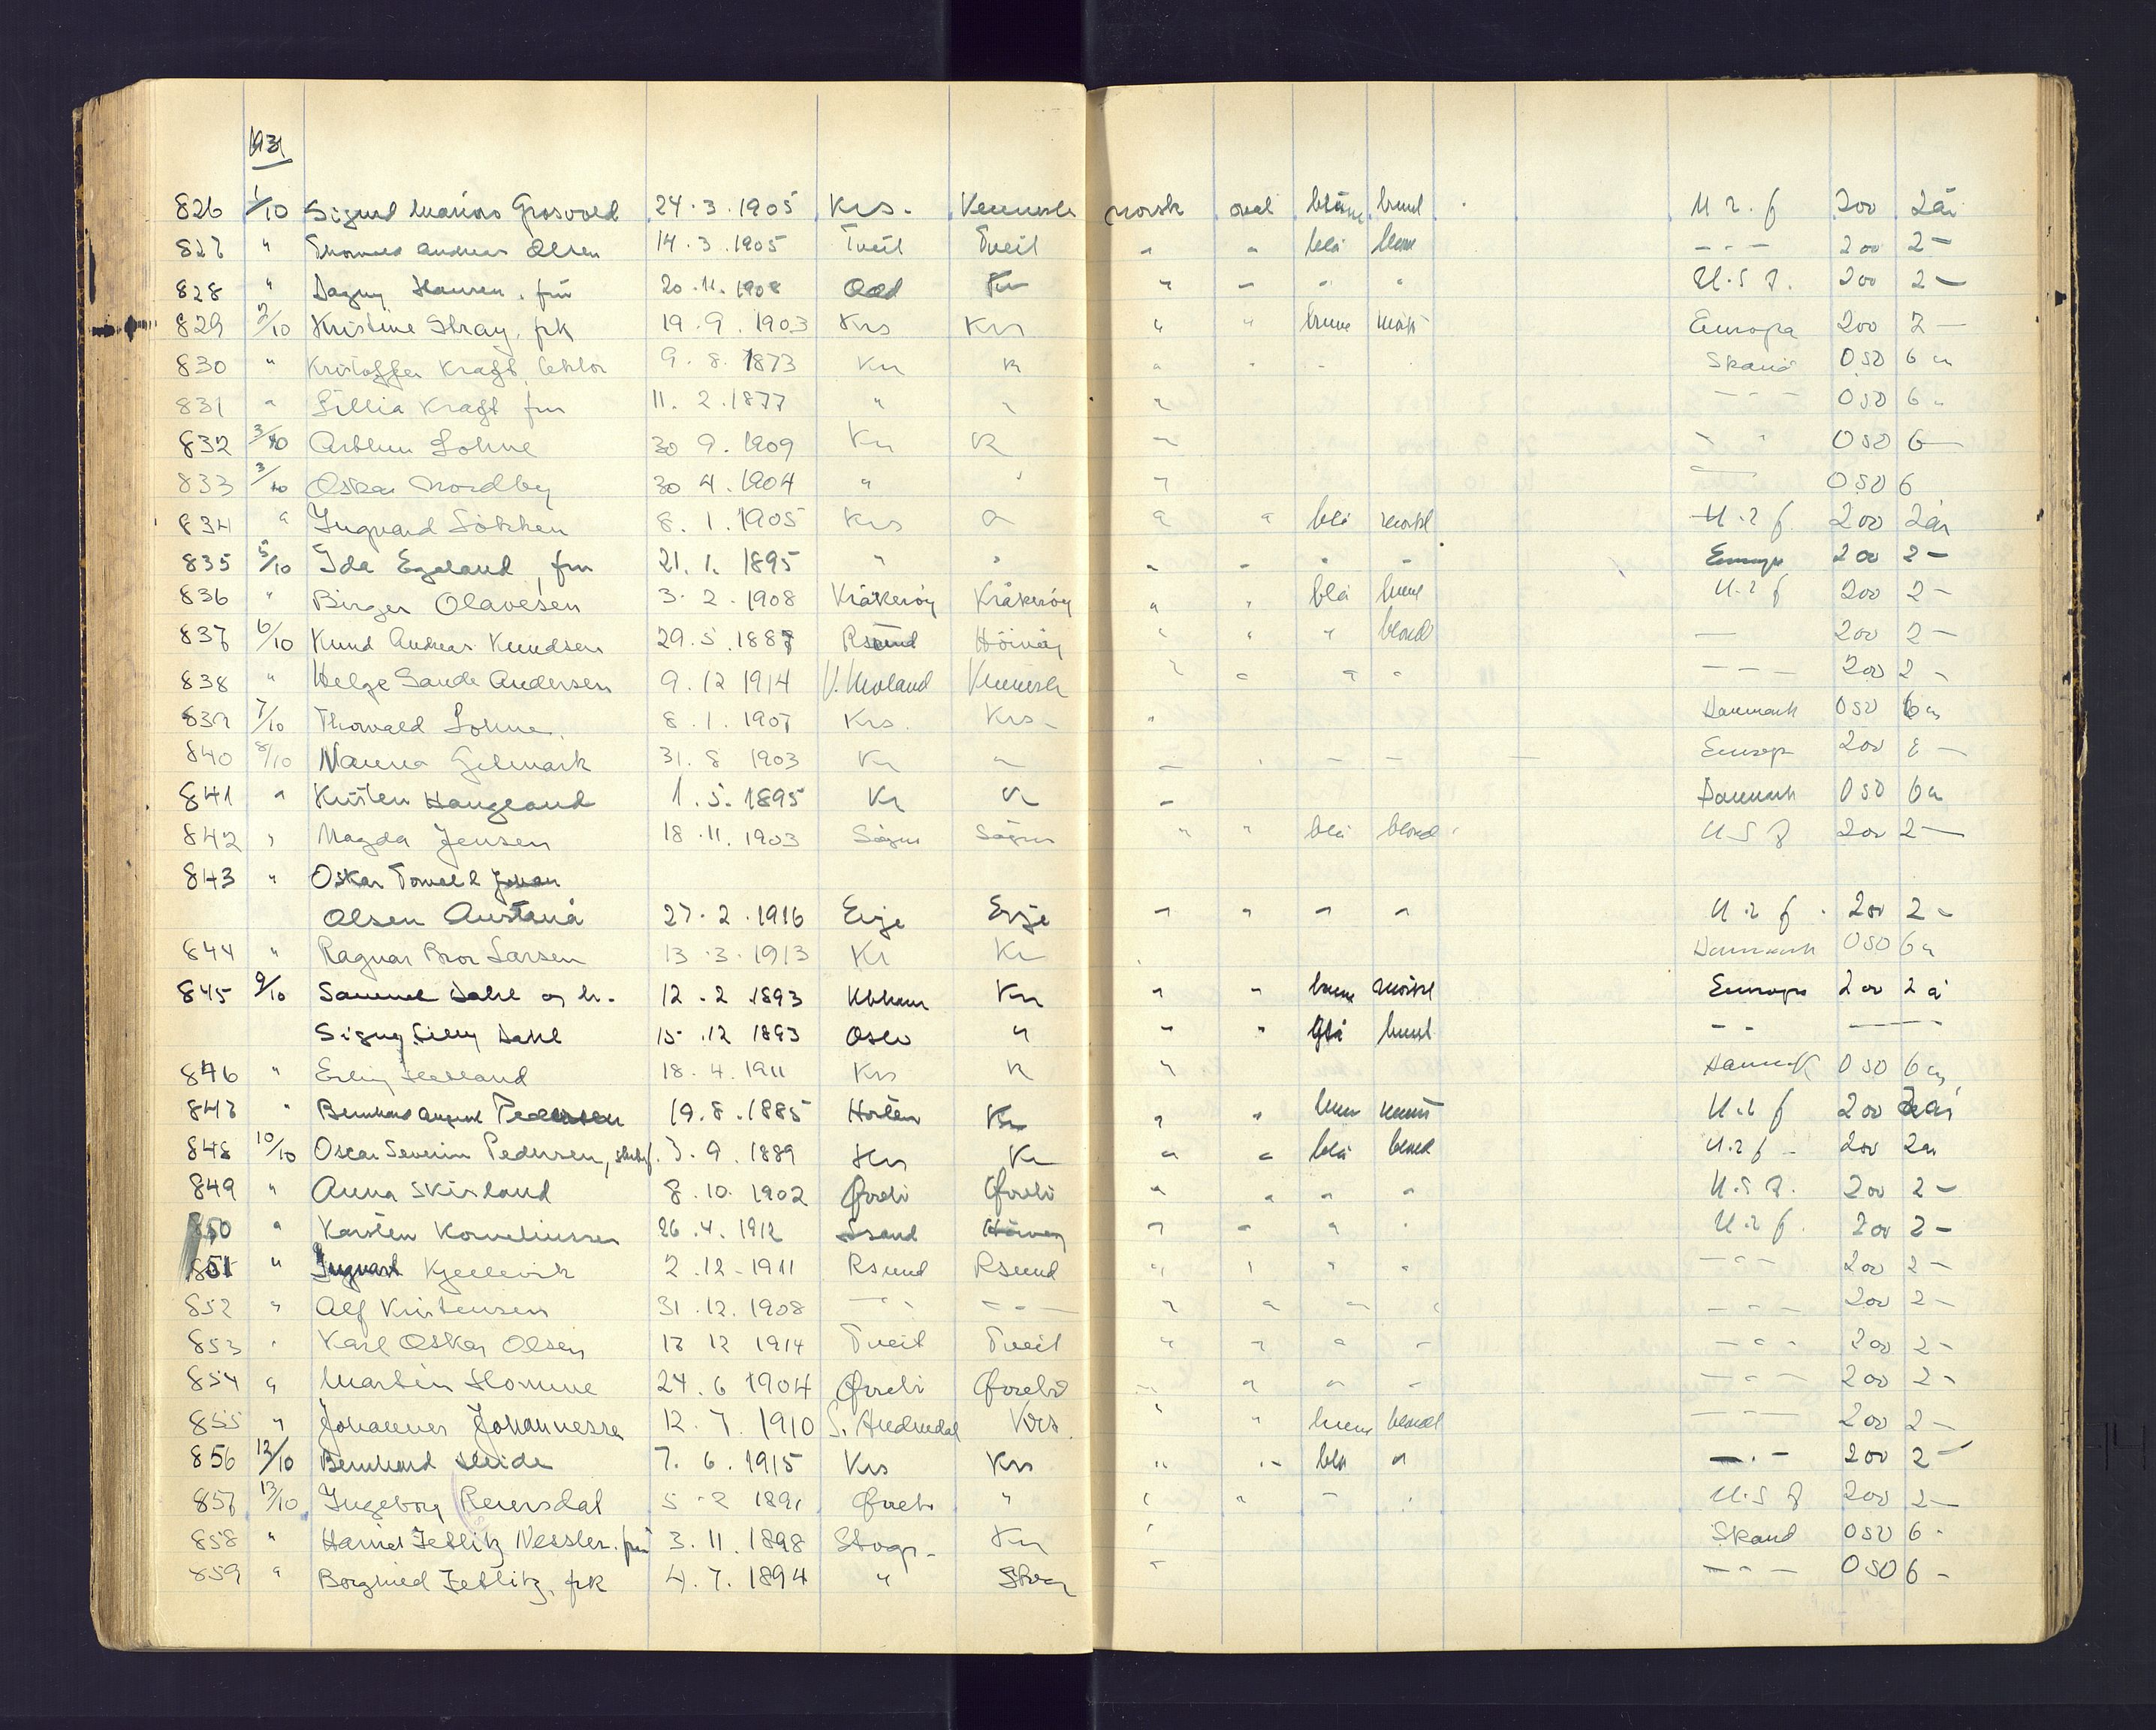 1931
826 1/10 Sigurd Marius Grosvold 24.3.1905 Krs. Vennesla norsk oval blåbrune brunt U. r. f 200 2 år
827 " Thomas Andreas Olsen 14.3.1905 Tveit Tveit " " blå - - - 200 2 -
828 " Dagny Hansen, fru 20.11.1908 Kr " - " " U.S.A. 200 2 -
829 2/10 Kristine Stray, frk 19.9.1903 Krs Krs " " brune mørkt Europa 200 2 -
830 " Kristoffer Kraft, lektor 9.8.1873 Kr K " " - Skand 050 6 m
831 " Lillia Kraft fru 11.2.1877 " " " - - - 050 6 -
832 3/10 Arthur Lohne 30 9.1909 Kr K " " " 050 6 -
833 3/10 Oskar Nordby 30 4.1904 " " " - 050 6
834 " Ingvard Løkken 8.1.1905 Krs " " " blå mørkt U. r. f. 200 2 år
835 5/10 Ida Egeland, fru 21.1.1895 " " " - " - Europa 200 2 -
836 " Birger Olavesen 3.2.1908 Kråkerøy Kråkerøy " " blå brunt U. r. f 200 2 -
837 6/10 Knud Andreas Knudsen 29.5.1887 Rsund Höivåg " " " blond - 200 2 -
838 " Helge Sande Andersen 9.12 1914 V. Moland Vennesla " " " " - - - 200 2 -
839 7/10 Thorvald Lohne. 8.1.1907 Krs. Krs - " Danmark 050 6 m
840 8/10 Nanna Gilmark 31.8 1903 Kr " - " - - - Europa 200 2 -
841 " Kristen Haugland 1.5.1895 Kr K - Danmark 050 6 m
842 " Magda Jensen 18.11.1903 Søgne Søgne " " blå blond U S A 200 2 -
843 " Oskar Torvald Johan
Olsen Austanå 27.2.1916 Evje Evje " " " " U. r. f. 200 2 -
844 " Ragnar Bror Larsen 13.3.1913 Kr Kr Danmark 050 6 m
845 9/10 Samuel Dahl og h. 12.2.1893 Kbhavn Kr " " brune mørkt Europa 200 2 å
Signy Lilly Dahl 15.12 1893 Oslo " " " blå brunt - - -
846 " Erling Hebband 18.4.1911 Krs K " Danmark 050 6 m
847 " Bernhard August Pedersen 19.8.1885 Horten Kr " " U. r. f 200 2 år
848 10/10 Oscar Severin Pedersen, 3.9.1889 Kr " " blå blond U. r. f - 200 2 år
849 " Anna Skisland 8.10.1902 Øvrebø Øvrebø " " " " U.S.A. 200 2 -
850 " Karsten Korneliussen 26.4.1912 Höivåg " - " " U. r. f. 200 2 -
851 " Ingvart Kjellevik 2.12.1911 Rsund Rsund " " " " - " - 200 2 -
852 " Alf Kristensen 31.12.1908 - " - - - " " - " - - - 200 2 -
853 " Karl Oskar Olsen 17 12 1914 Tveit Tveit " " " - - " " 200 2 -
854 " Martin Homme 24.6 1904 Øvrebø Øvrebø " " " - - - - 200 2 -
855 " Johannes Johannessen 12.7.1910 S. Audnedal Krs. " " brune blond - - - 200 2 -
856 12/10 Bernhard Heide 7.6.1915 Krs Krs " " blå " - . - 200 2 -
857 13/10 Ingeborg Reiersdal 5.2 1891 Øvrebø " " " - " U. S A 200 2 -
858 " Harriet Jetlitz Nessler. fru 3.11.1898 Stvgr. Kr " Skand 050 6 -
859 " Borghild Jetlitz, frk 4.7.1894 " " - " - 050 6 -